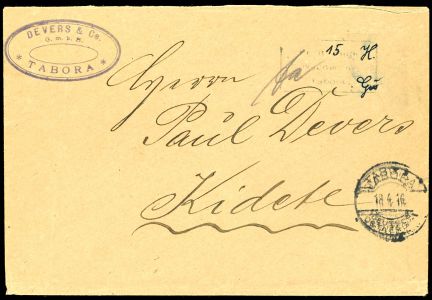 DEVERS & Co.
G.m.b.H.
* TABORA *
15 H.
Herrn
Paul Devers
Kidete
TABORA
18.4.16